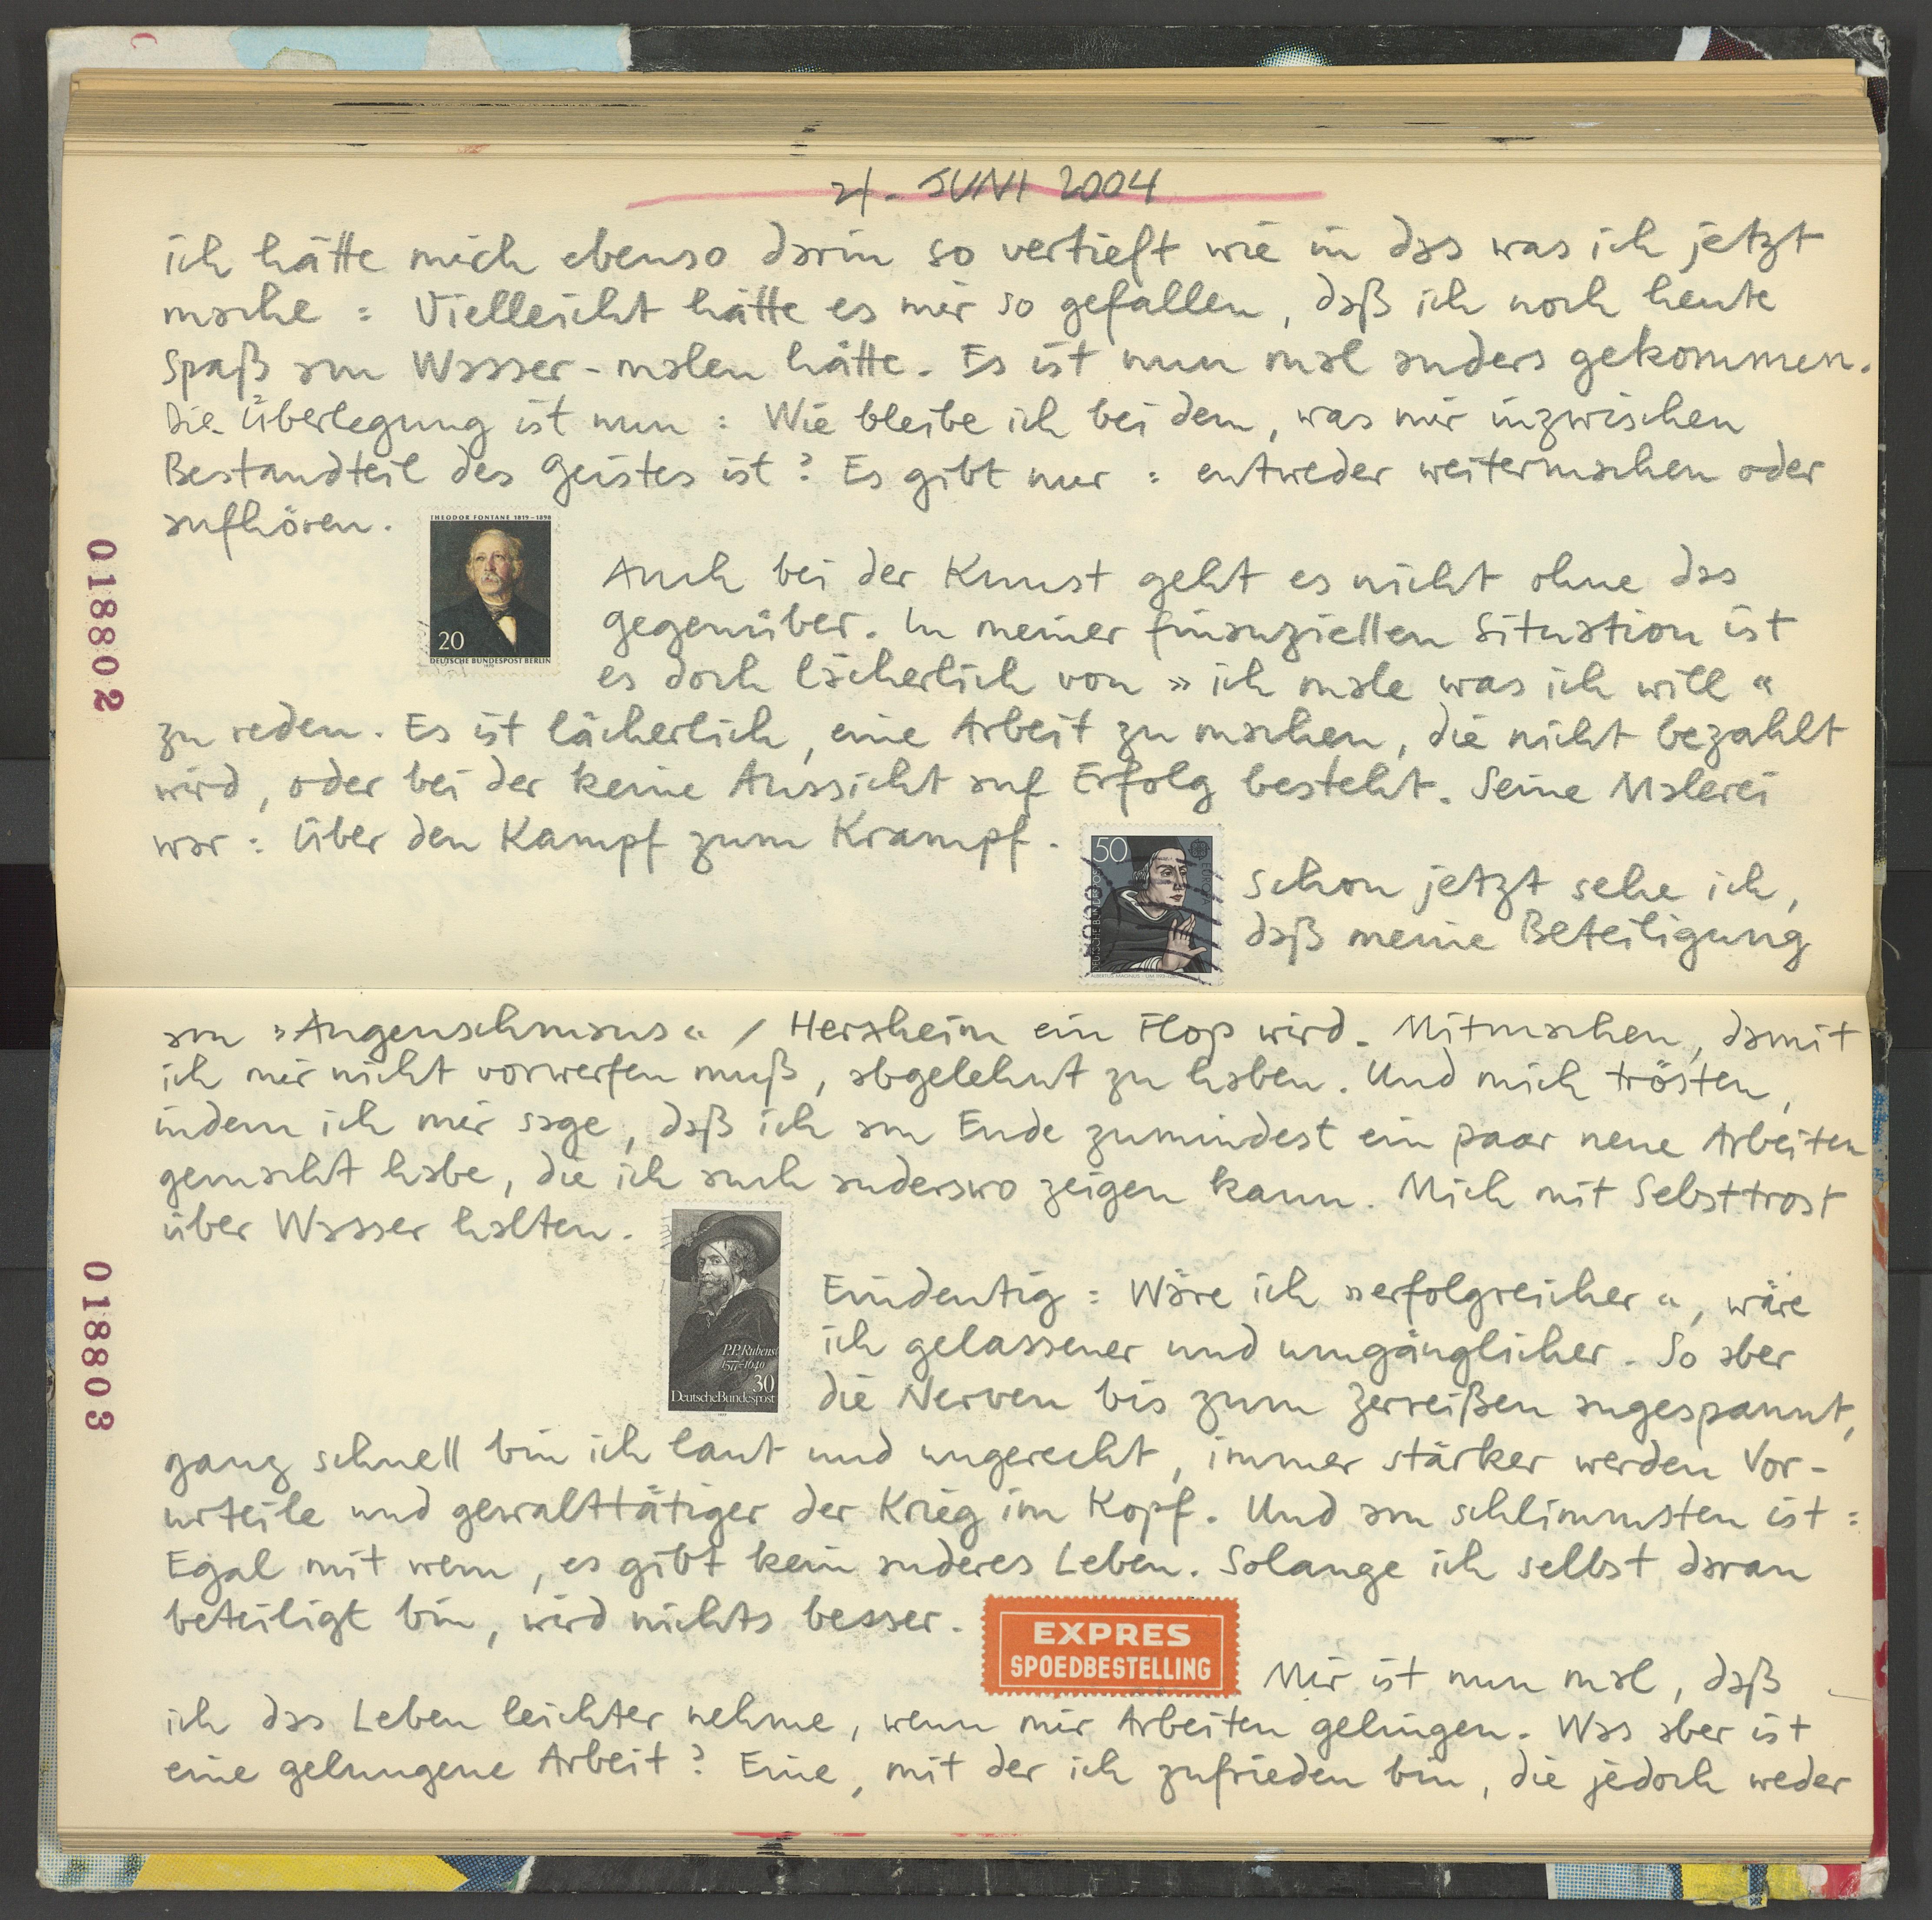 21. JUNI 2004
ich hätte mich ebenso darin so vertieft wie in das was ich jetzt
mache : Vielleicht hätte es mir so gefallen, daß ich noch heute
Spaß am Wasser-malen hätte. Es ist nun mal anders gekommen.
Die Überlegung ist nun : Wie bleibe ich bei dem, was mir inzwischen
Bestandteil des Geistes ist? Es gibt nur : entweder weitermachen oder
aufhören.
THEODOR FONTANE 1819-1898
20
DEUTSCHE BUNDESPOST BERLIN
018802
Auch bei der Kunst geht es nicht ohne das
gegenüber. In meiner finanziellen Situation ist
es doch lächerlich von » ich male was ich will «
zu reden. Es ist lächerlich, eine Arbeit zu machen, die nicht bezahlt
wird, oder bei der keine Aussicht auf Erfolg besteht. Seine Malerei
war : Über den Kampf zum Krampf.
50
DEUTSCHE BUNDESPOST
EUROPA
ALBERTUS MAGNUS
Schon jetzt sehe ich,
daß meine Beteiligung
am »Augenschmaus« / Herxheim ein Flop wird. Mitmachen, damit
ich mir nicht vorwerfen muß, abgelehnt zu haben. Und mich trösten,
indem ich mir sage, daß ich am Ende zumindest ein paar neue Arbeiten
gemacht habe, die ich auch anderswo zeigen kann. Mich mit Selbsttrost
über Wasser halten.
P.P. Rubens
1577-1640
30
Deutsche Bundespost
018803
Eindeutig : Wäre ich »erfolgreicher«, wäre
ich gelassener und umgänglicher. So aber
die Nerven bis zum Zerreißen angespannt,
ganz schnell bin ich laut und ungerecht, immer stärker werden Vor-
urteile und gewalttätiger der Krieg im Kopf. Und am schlimmsten ist :
Egal mit wem, es gibt kein anderes Leben. Solange ich selbst daran
beteiligt bin, wird nichts besser.
EXPRES
SPOEDBESTELLING
Mir ist nun mal, daß
ich das Leben leichter nehme, wenn mir Arbeiten gelingen. Was aber ist
eine gelungene Arbeit? Eine, mit der ich zufrieden bin, die jedoch weder